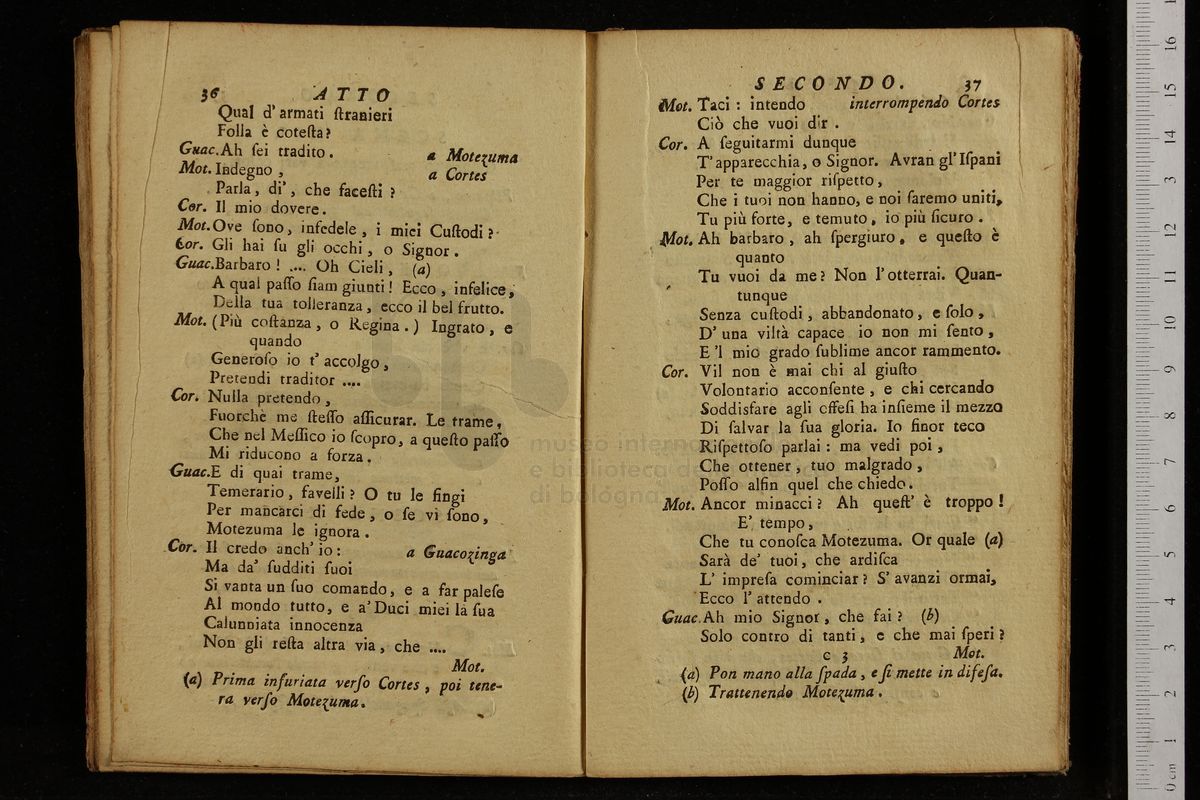 36 ATTO
Qual d' armati ſtranieri
Folla è coteſta?
Guac. Ah ſei tradito. a Motezuma
Mot. Indegno, a Cortes
Parla, di', che faceſti?
Cor. Il mio dovere.
Mot. Ove ſono, infedele, i miei Cuſtodi?
Cor. Gli hai ſu gli occhi, o Signor.
Guac. Barbaro! .... Oh Cieli, (a)
A qual paſſo ſiam giunti! Ecco, infelice,
Della tua tolleranza, ecco il bel frutto.
Mot. (Più coſtanza, o Regina.) Ingrato, e
quando
Generoſo io t' accolgo,
Pretendi traditor ....
Cor. Nulla pretendo,
Fuorchè me ſteſſo aſſicurar. Le trame,
Che nel Meſſico io ſcopro, a queſto paſſo
Mi riducono a forza.
Guac. E di quai trame,
Temerario, favelli? O tu le fingi
Per mancarci di fede, o ſe vi ſono,
Motezuma le ignora.
Cor. Il credo anch' io: a Guacozinga
Ma da' ſudditi ſuoi
Si vanta un ſuo comando, e a far paleſe
Al mondo tutto, e a' Duci miei la ſua
Calunniata innocenza
Non gli reſta altra via, che ....
Mot.
(a) Prima infuriata verſo Cortes, poi tene-
ra verſo Motezuma.
SECONDO. 37
Mot. Taci: intendo interrompendo Cortes
Ciò che vuoi dir.
Cor. A ſeguitarmi dunque
T' apparecchia, o Signor. Avran gl' Iſpani
Per te maggior riſpetto,
Che i tuoi non hanno, e noi ſaremo uniti,
Tu più forte, e temuto, io più ſicuro.
Mot. Ah barbaro, ah ſpergiuro, e queſto è
quanto
Tu vuoi da me? Non l' otterrai. Quan-
tunque
Senza cuſtodi, abbandonato, e ſolo,
D' una viltà capace io non mi ſento,
E 'l mio grado ſublime ancor rammento.
Cor. Vil non è mai chi al giuſto
Volontario acconſente, e chi cercando
Soddisfare agli offeſi ha inſieme il mezzo
Di ſalvar la ſua gloria. Io finor teco
Riſpettoſo parlai: ma vedi poi,
Che ottener, tuo malgrado,
Poſſo alfin quel che chiedo.
Mot. Ancor minacci? Ah queſt' è troppo!
E' tempo,
Che tu conoſca Motezuma. Or quale (a)
Sarà de' tuoi, che ardiſca
L' impreſa cominciar? S' avanzi ormai,
Ecco l' attendo.
Guac. Ah mio Signor, che fai? (b)
Solo contro di tanti, e che mai ſperi?
c 3 Mot.
(a) Pon mano alla ſpada, e ſi mette in difeſa.
(b) Trattenendo Motezuma.
museo interna
e biblioteca de
di bologna
0 cm 1 2 3 4 5 6 7 8 9 10 11 12 13 14 15 16